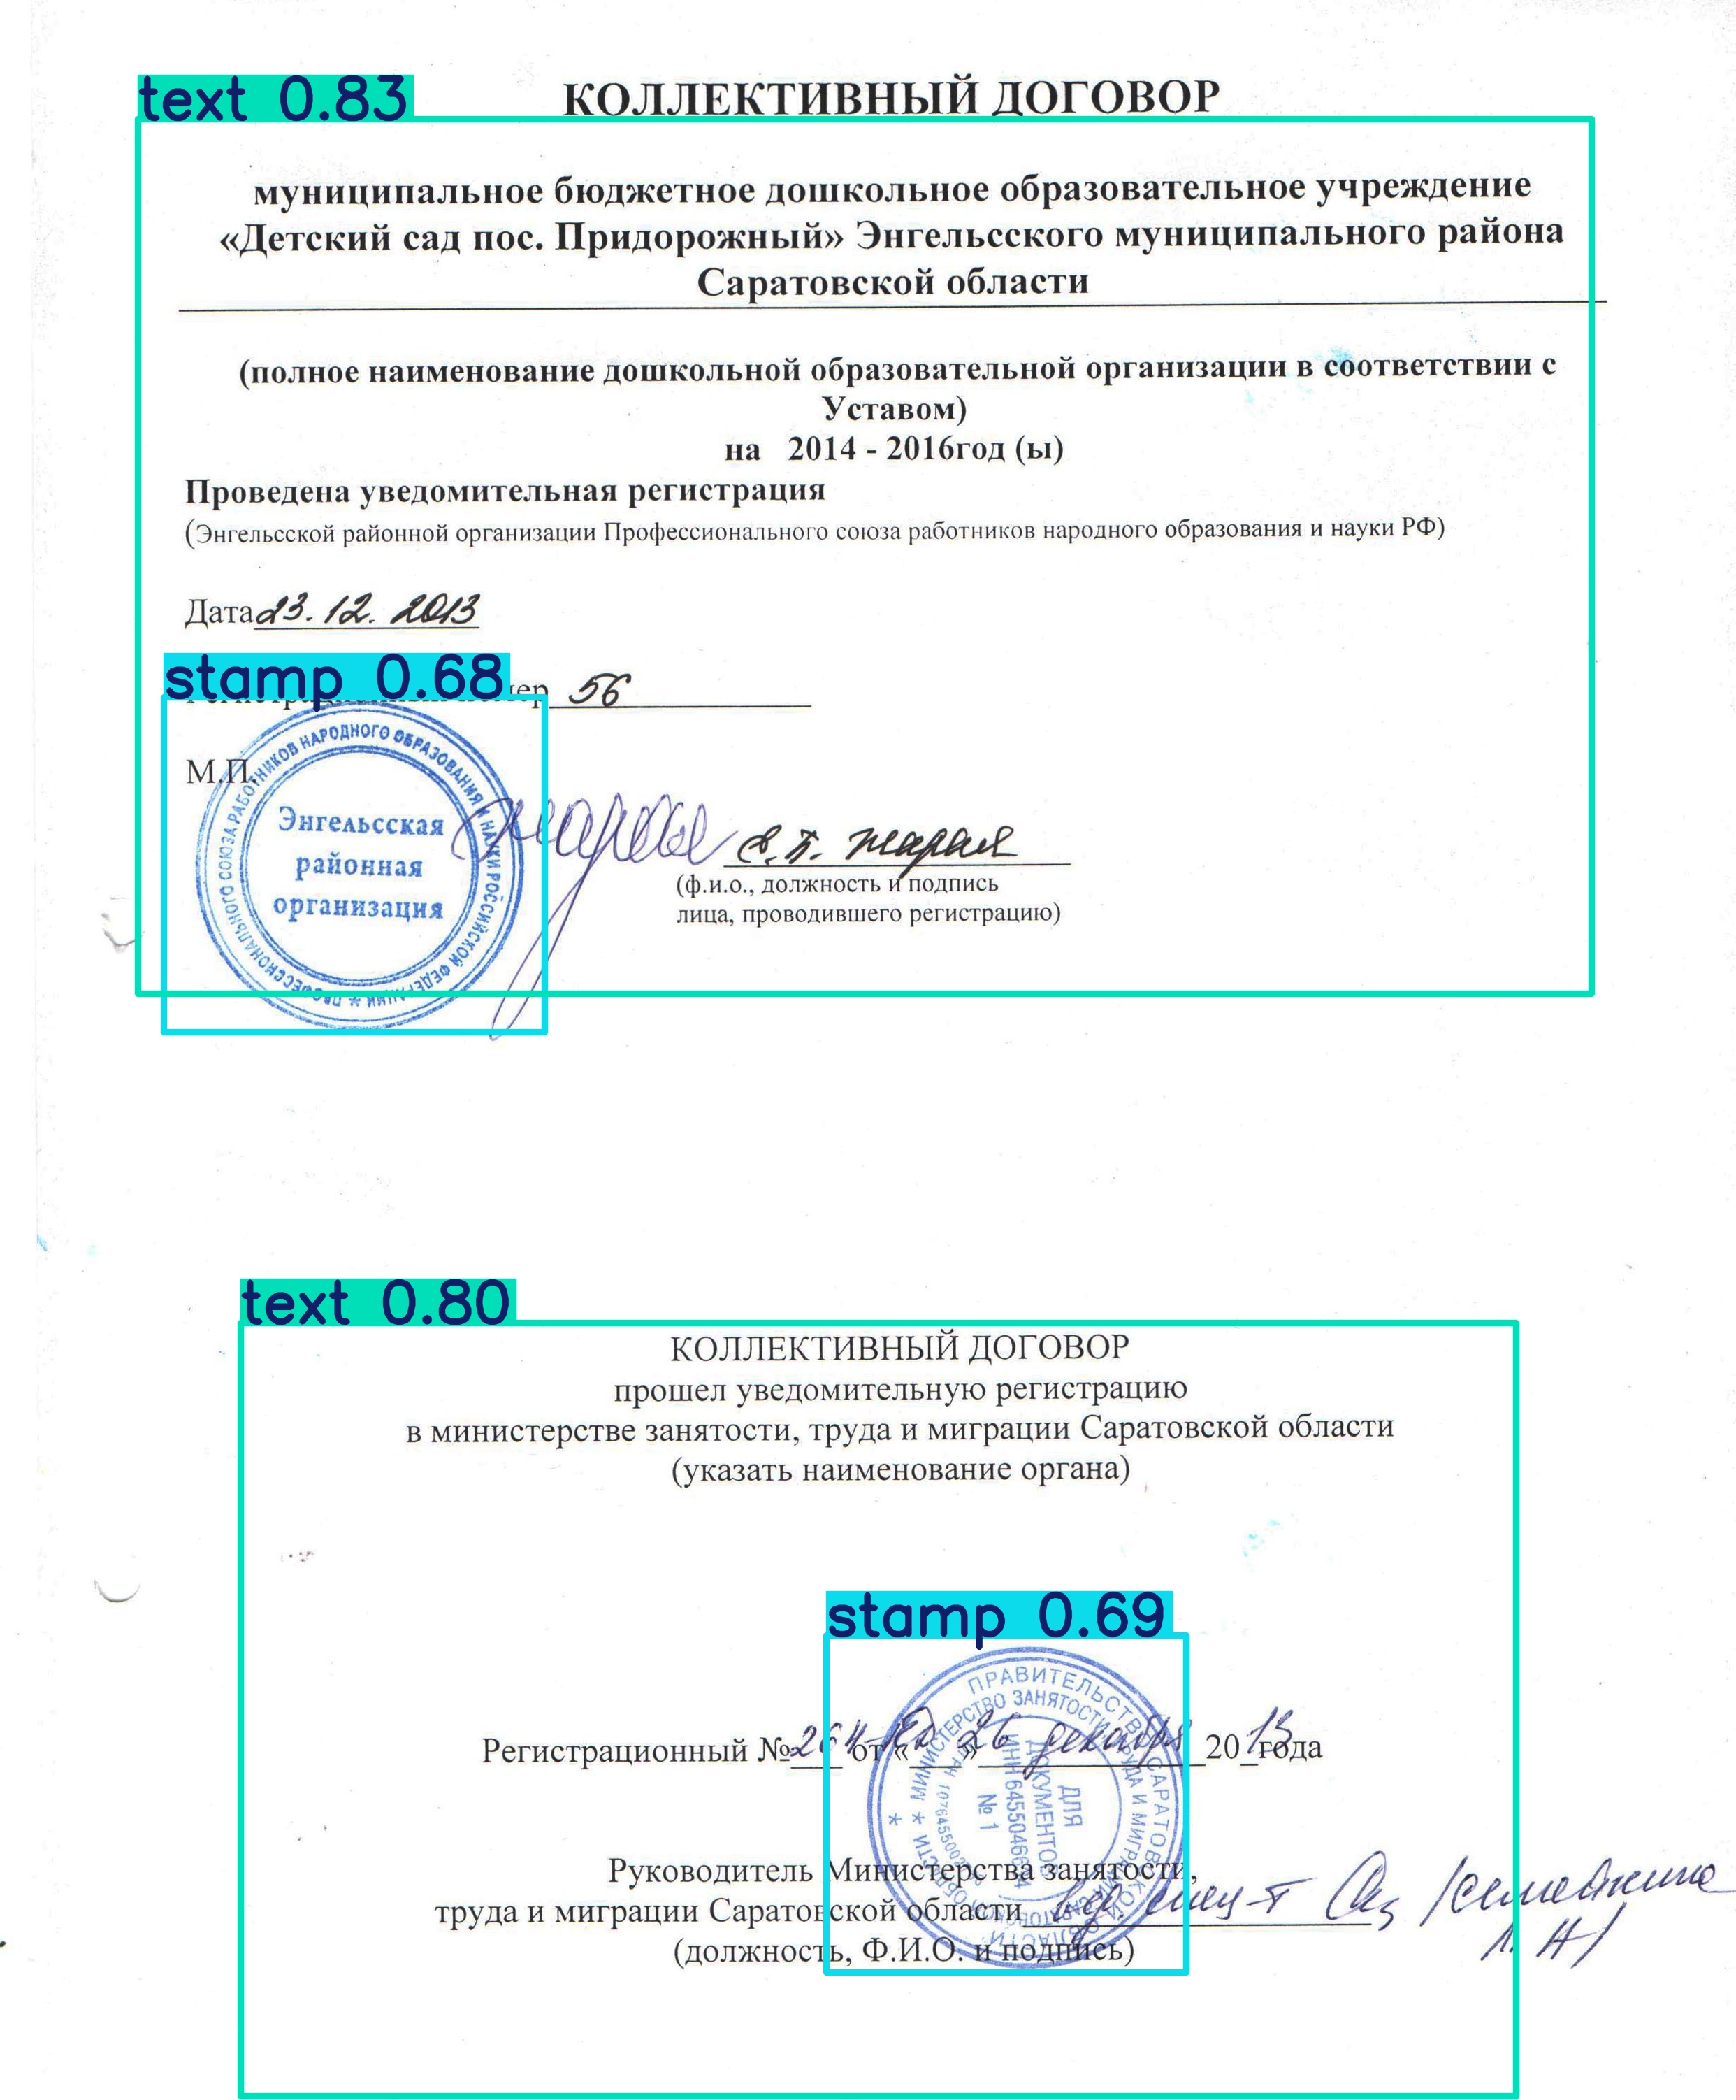 text 0.83
КОЛЛЕКТИВНЫЙ ДОГОВОР
муниципальное бюджетное дошкольное образовательное учреждение
«Детский сад пос. Придорожный» Энгельсского муниципального района
Саратовской области
(полное наименование дошкольной образовательной организации в соответствии с
Уставом)
на 2014 - 2016год (ы)
Проведена уведомительная регистрация
(Энгельсской районной организации Профессионального союза работников народного образования и науки РФ)
Дата 23.12.2013
stamp 0.68
56
М.П.
РАБОТНИКОВ НАРОДНОГО ОБРАЗОВАНИЯ И НАУКИ РОССИЙСКОЙ ФЕДЕРАЦИИ * ПРОФЕССИОНАЛЬНОГО СОЮЗА
Энгельсская
районная
организация
(ф.и.о., должность и подпись
лица, проводившего регистрацию)
text 0.80
КОЛЛЕКТИВНЫЙ ДОГОВОР
прошел уведомительную регистрацию
в министерстве занятости, труда и миграции Саратовской области
(указать наименование органа)
stamp 0.69
ПРАВИТЕЛЬСТВО САРАТОВСКОЙ ОБЛАСТИ *
МИНИСТЕРСТВО ЗАНЯТОСТИ, ТРУДА И МИГРАЦИИ САРАТОВСКОЙ ОБЛАСТИ *
ДЛЯ
ДОКУМЕНТОВ
№ 1
Регистрационный № 264-КД от « 26 » декабря 2013 года
Руководитель Министерства занятости,
труда и миграции Саратовской области
(должность, Ф.И.О. и подпись)